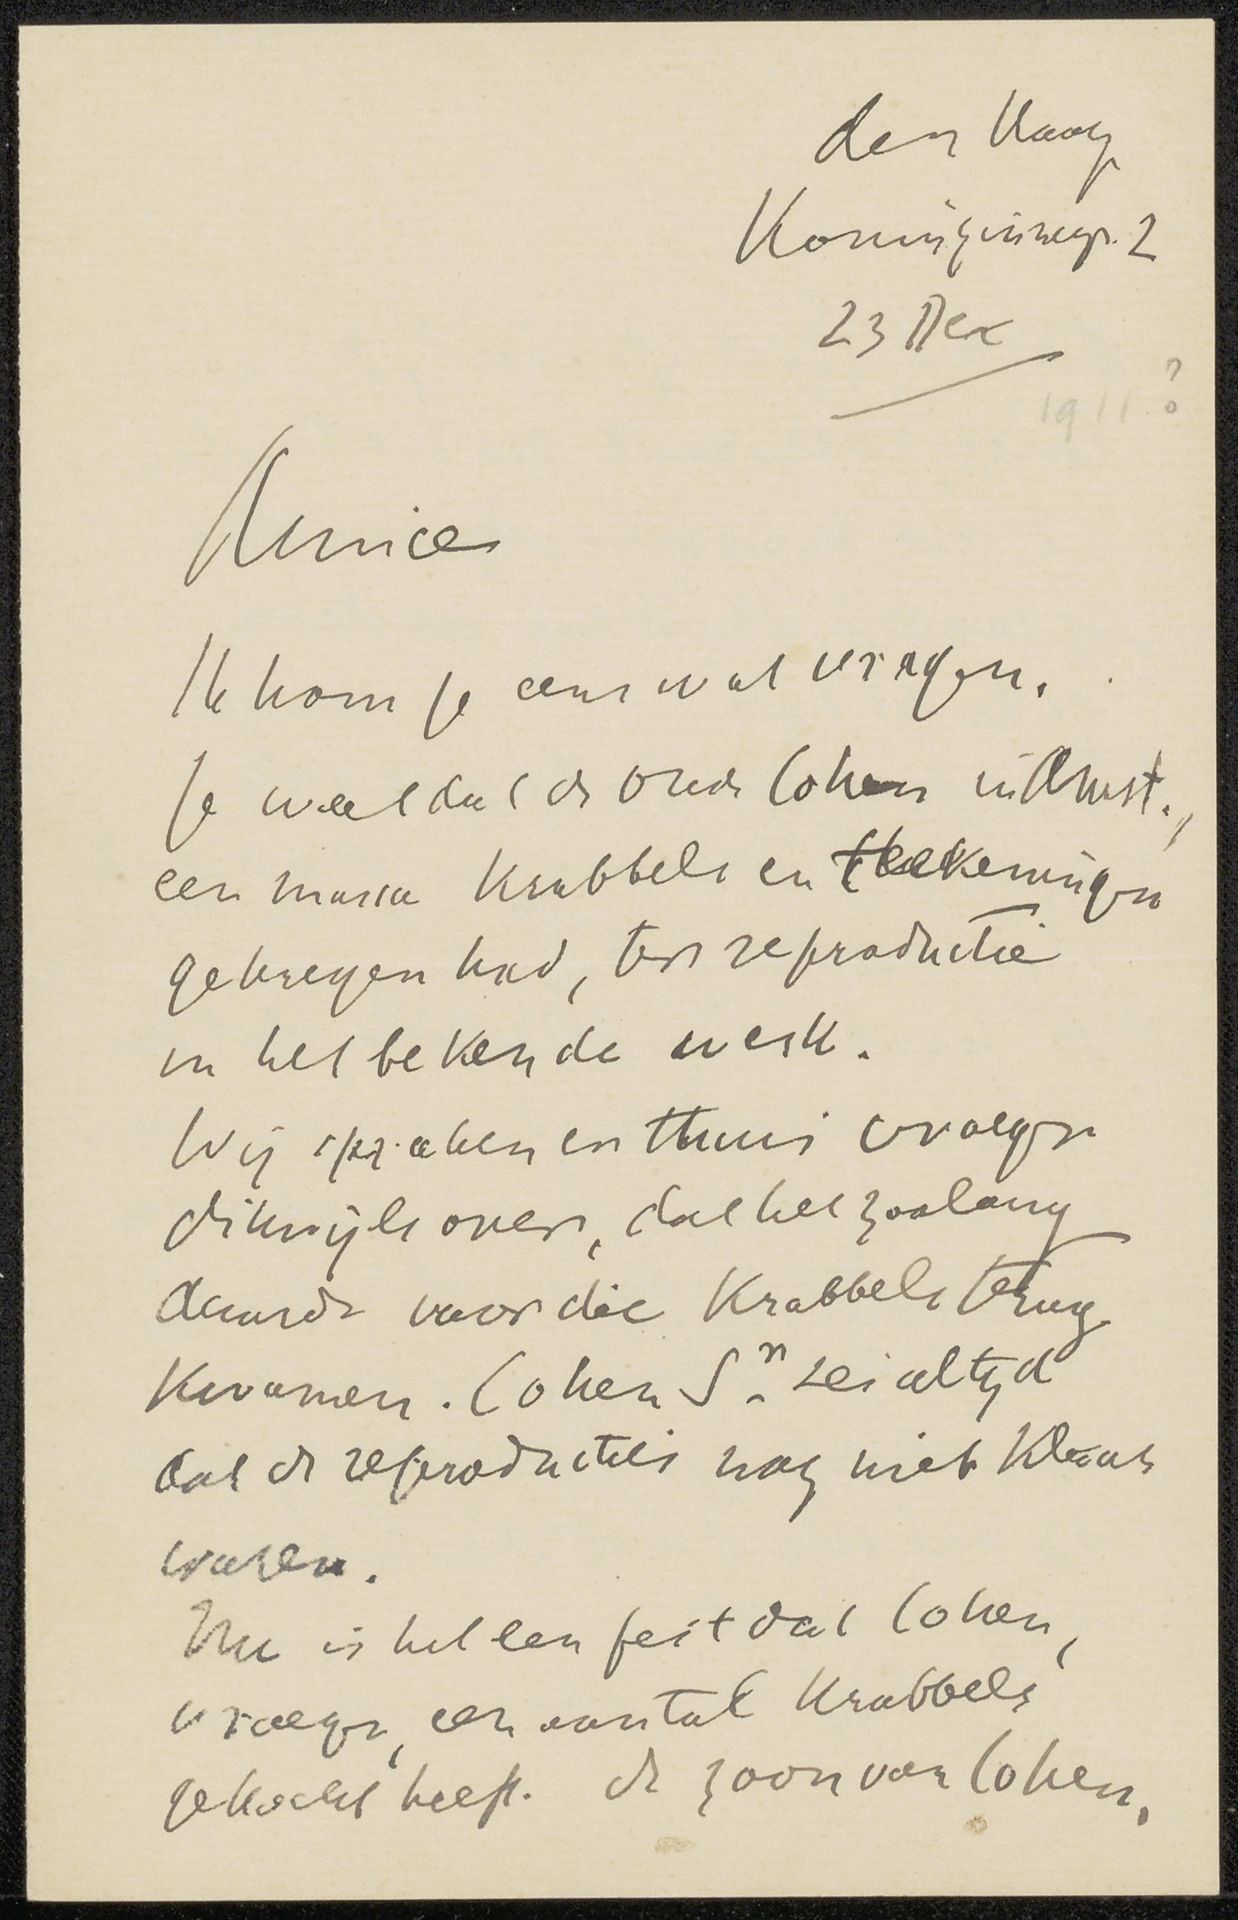 den Haag
Koninginnegr. 2
23 Dec
1911?
Amice
Ik kom je eens wat vragen.
Je weet dat de oude Cohen in Amst.,
een massa Krabbels en teekeningen
gekregen had, ter reproductie
in het bekende werk.
Wij spraken er thuis vroeger
dikwijls over, dat het zoolang
duurde voor die Krabbels terug
kwamen. Cohen Sn. zei altijd
dat de reproducties nog niet klaar
waren.
Nu is het een feit dat Cohen,
vroeger, een aantal Krabbels
gekocht heeft. de zoon van Cohen,